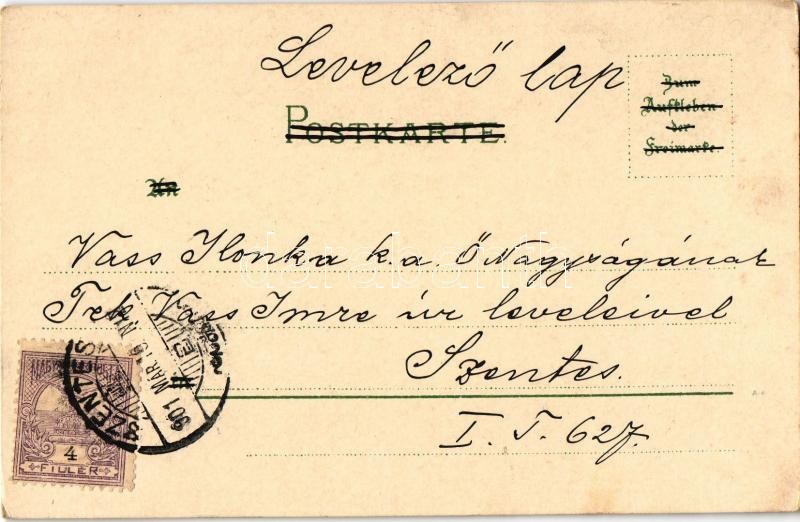 Levelező lap
POSTKARTE.
Zum
Aufkleben
der
Freimarke.
An
Vass Ilonka k.a. Ő Nagyságának
Tek. Vass Imre úr leveleivel
Szentes.
I. T. 627.
SZENTES
901 MÁR.
4
FILLÉR
darabanth